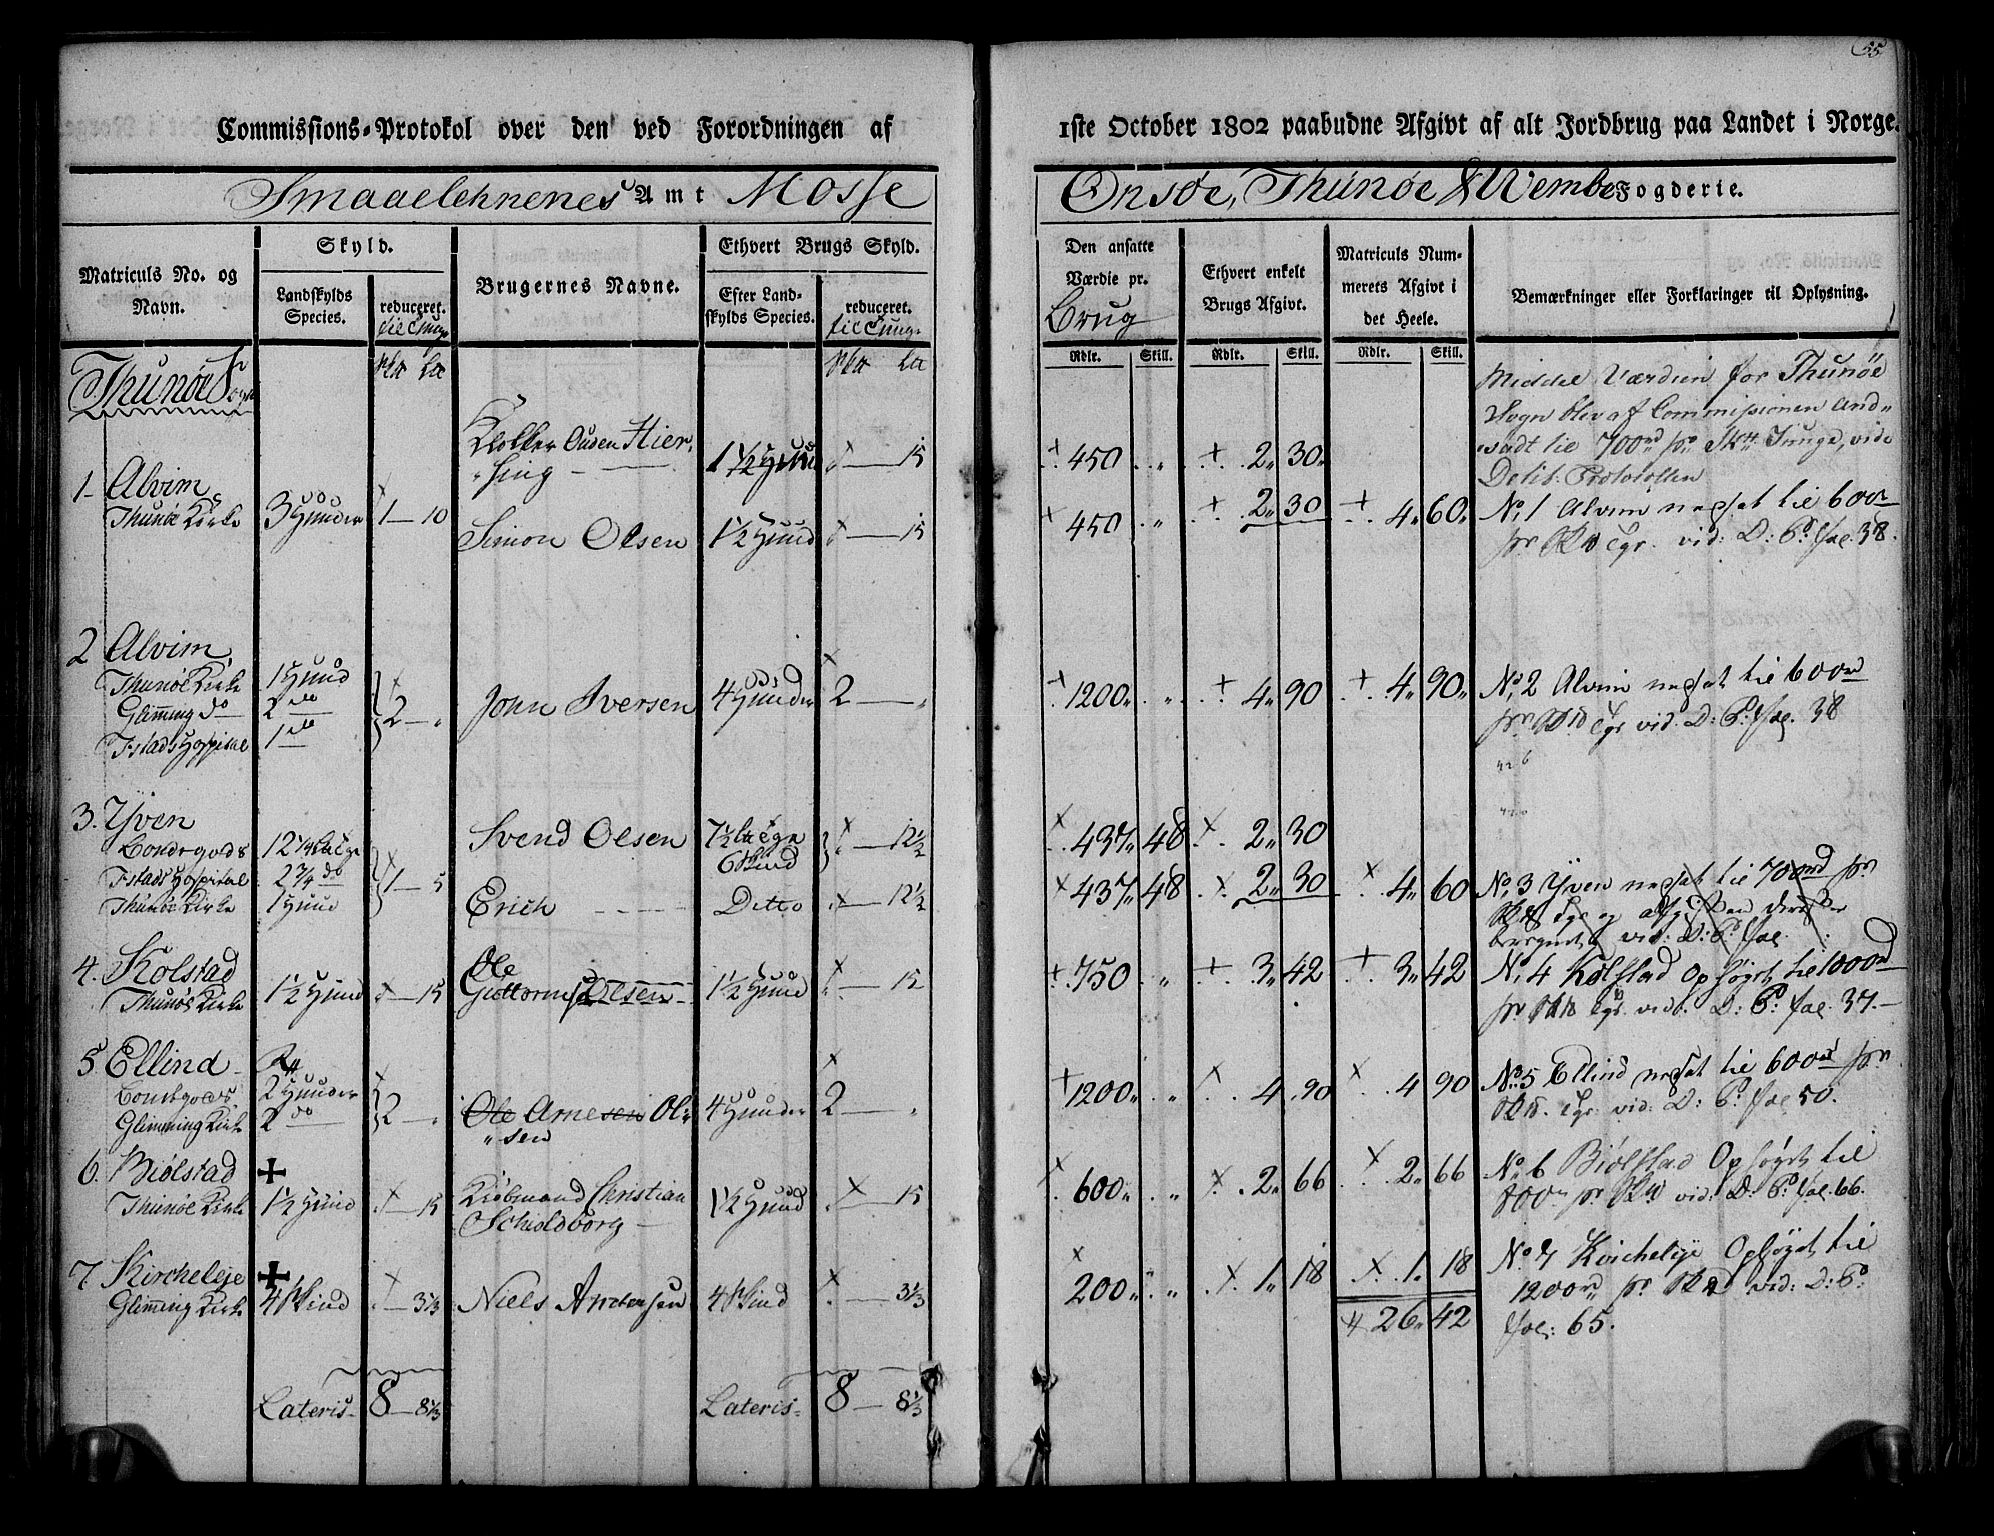 55
Commissions-Protokol over den ved Forordningen af
1ste October 1802 paabudne Afgivt af alt Jordbrug paa Landet i Norge.
Smaaelehnenes Amt Mosse
Onsøe, Thunøe & Wembe Fogderie.
Matriculs No. og Navn.
Skyld.
Landskylds Species.
reduceret. til Tunge
Brugernes Navne.
Ethvert Brugs Skyld.
Efter Landskylds Species.
reduceret. til Tunge
Den ansatte Værdie pr. Brug
Ethvert enkelt Brugs Afgivt.
Matriculs Nummerets Afgivt i det Heele.
Bemærkninger eller Forklaringer til Oplysning.
Rdlr. Skill. Rdlr. Skill. Rdlr. Skill.
Thunøe Sogn
Middel Værdien for Thunøe
Sogn blev af Commissionen and-
sadt til 700rd pr Tunge, vide
Delib: Protokollen
Klokker Ouden Hier-
sing 1½ Hund 15 450 2 30
1 Alvim
Thunøe Kirke 3 Hunder 1 — 10
Simon Olsen 1½ Hund 15 450 2 30 4 60
No 1 Alvim nedsat til 600rd
pr Tgr. vid: D: P: fol. 38.
2 Alvim
Thunøe Kirke 1 Hund
Glemming do 2 do
Fstads Hospital 1 do
2 —
John Iversen 4 Hunder 2 — 1200 4 90 4 90
No 2 Alvim nedsat til 600rd
pr Tgr vid. D: P: fol. 38
3. Yven
Bondegods 12¼ Tge
Fstads Hospital 2¼ do
Thunøe Kirke 1 Hund
1 — 5
Svend Olsen 7½ 6 Skind 12½ 437 48 2 30
Erich — Ditto 12½ 437 48 2 30 4 60
No 3 Yven nedsat til 700rd pr
vid: D: P: fol.
4. Kolstad
Thunøe Kirke 1½ Hund 15
Ole
Guttormsen Olsen 1½ Hund 15 750 3 42 3 42
No 4 Kolstad Ophøyet til 1000rd
pr Tgr. vid. D: P: fol. 37.
5 Ellind
Bondegods 2 Hunder
Glemming Kirke 2 do
2 —
Ole Arnesen Ol-
sen 4 Hunder 2 — 1200 4 90 4 90
No 5 Ellind nedsat til 600rd pr
Tgr. vid: D: P: fol 50.
6. Biølstad
Thunøe Kirke 1½ Hund 15
Kiøbmand Christian
Schioldborg 1½ Hund 15 600 2 66 2 66
No 6 Biølstad Ophøyet til
800rd pr vid: D: P: fol. 66.
7. Kircheleje
Glemming Kirke 4 Skind 3⅓
Niels Andersen 4 Skind 3⅓ 200 1 18 1 18
No 7 Kircheleje Ophøyet til
1200rd pr vid: D: P:
fol: 65.
26 42
Lateris 8 — 8⅓
Lateris 8 — 8⅓